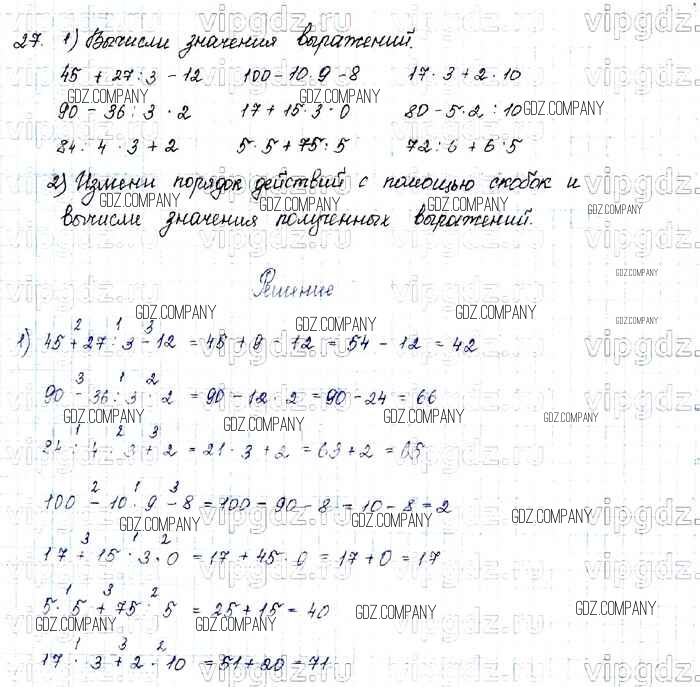 27. 1) Вычисли значения выражений.
45 + 27 : 3 - 12 100 - 10 · 9 - 8 17 · 3 + 2 · 10
90 - 36 : 3 · 2 17 + 15 · 3 · 0 80 - 5 · 2 : 10
84 : 4 · 3 + 2 5 · 5 + 75 : 5 72 : 6 + 6 · 5
2) Измени порядок действий с помощью скобок и
вычисли значения полученных выражений.
Решение
2 1 3
1) 45 + 27 : 3 - 12 = 45 + 9 - 12 = 54 - 12 = 42
3 1 2
90 - 36 : 3 · 2 = 90 - 12 · 2 = 90 - 24 = 66
1 2 3
84 : 4 · 3 + 2 = 21 · 3 + 2 = 63 + 2 = 65
2 1 3
100 - 10 · 9 - 8 = 100 - 90 - 8 = 10 - 8 = 2
3 1 2
17 + 15 · 3 · 0 = 17 + 45 · 0 = 17 + 0 = 17
1 3 2
5 · 5 + 75 : 5 = 25 + 15 = 40
1 3 2
17 · 3 + 2 · 10 = 51 + 20 = 71
vipgdz.ru
GDZ.COMPANY